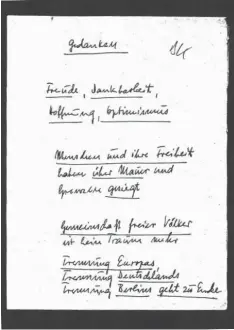 Gedanken
Freude, Dankbarkeit,
Hoffnung, Optimismus
Menschen und ihre Freiheit
haben über Mauer und
gesiegt
Gemeinschaft freier Völker
ist kein Traum mehr
Trennung Europas
Trennung Deutschlands
Trennung Berlins geht zu Ende